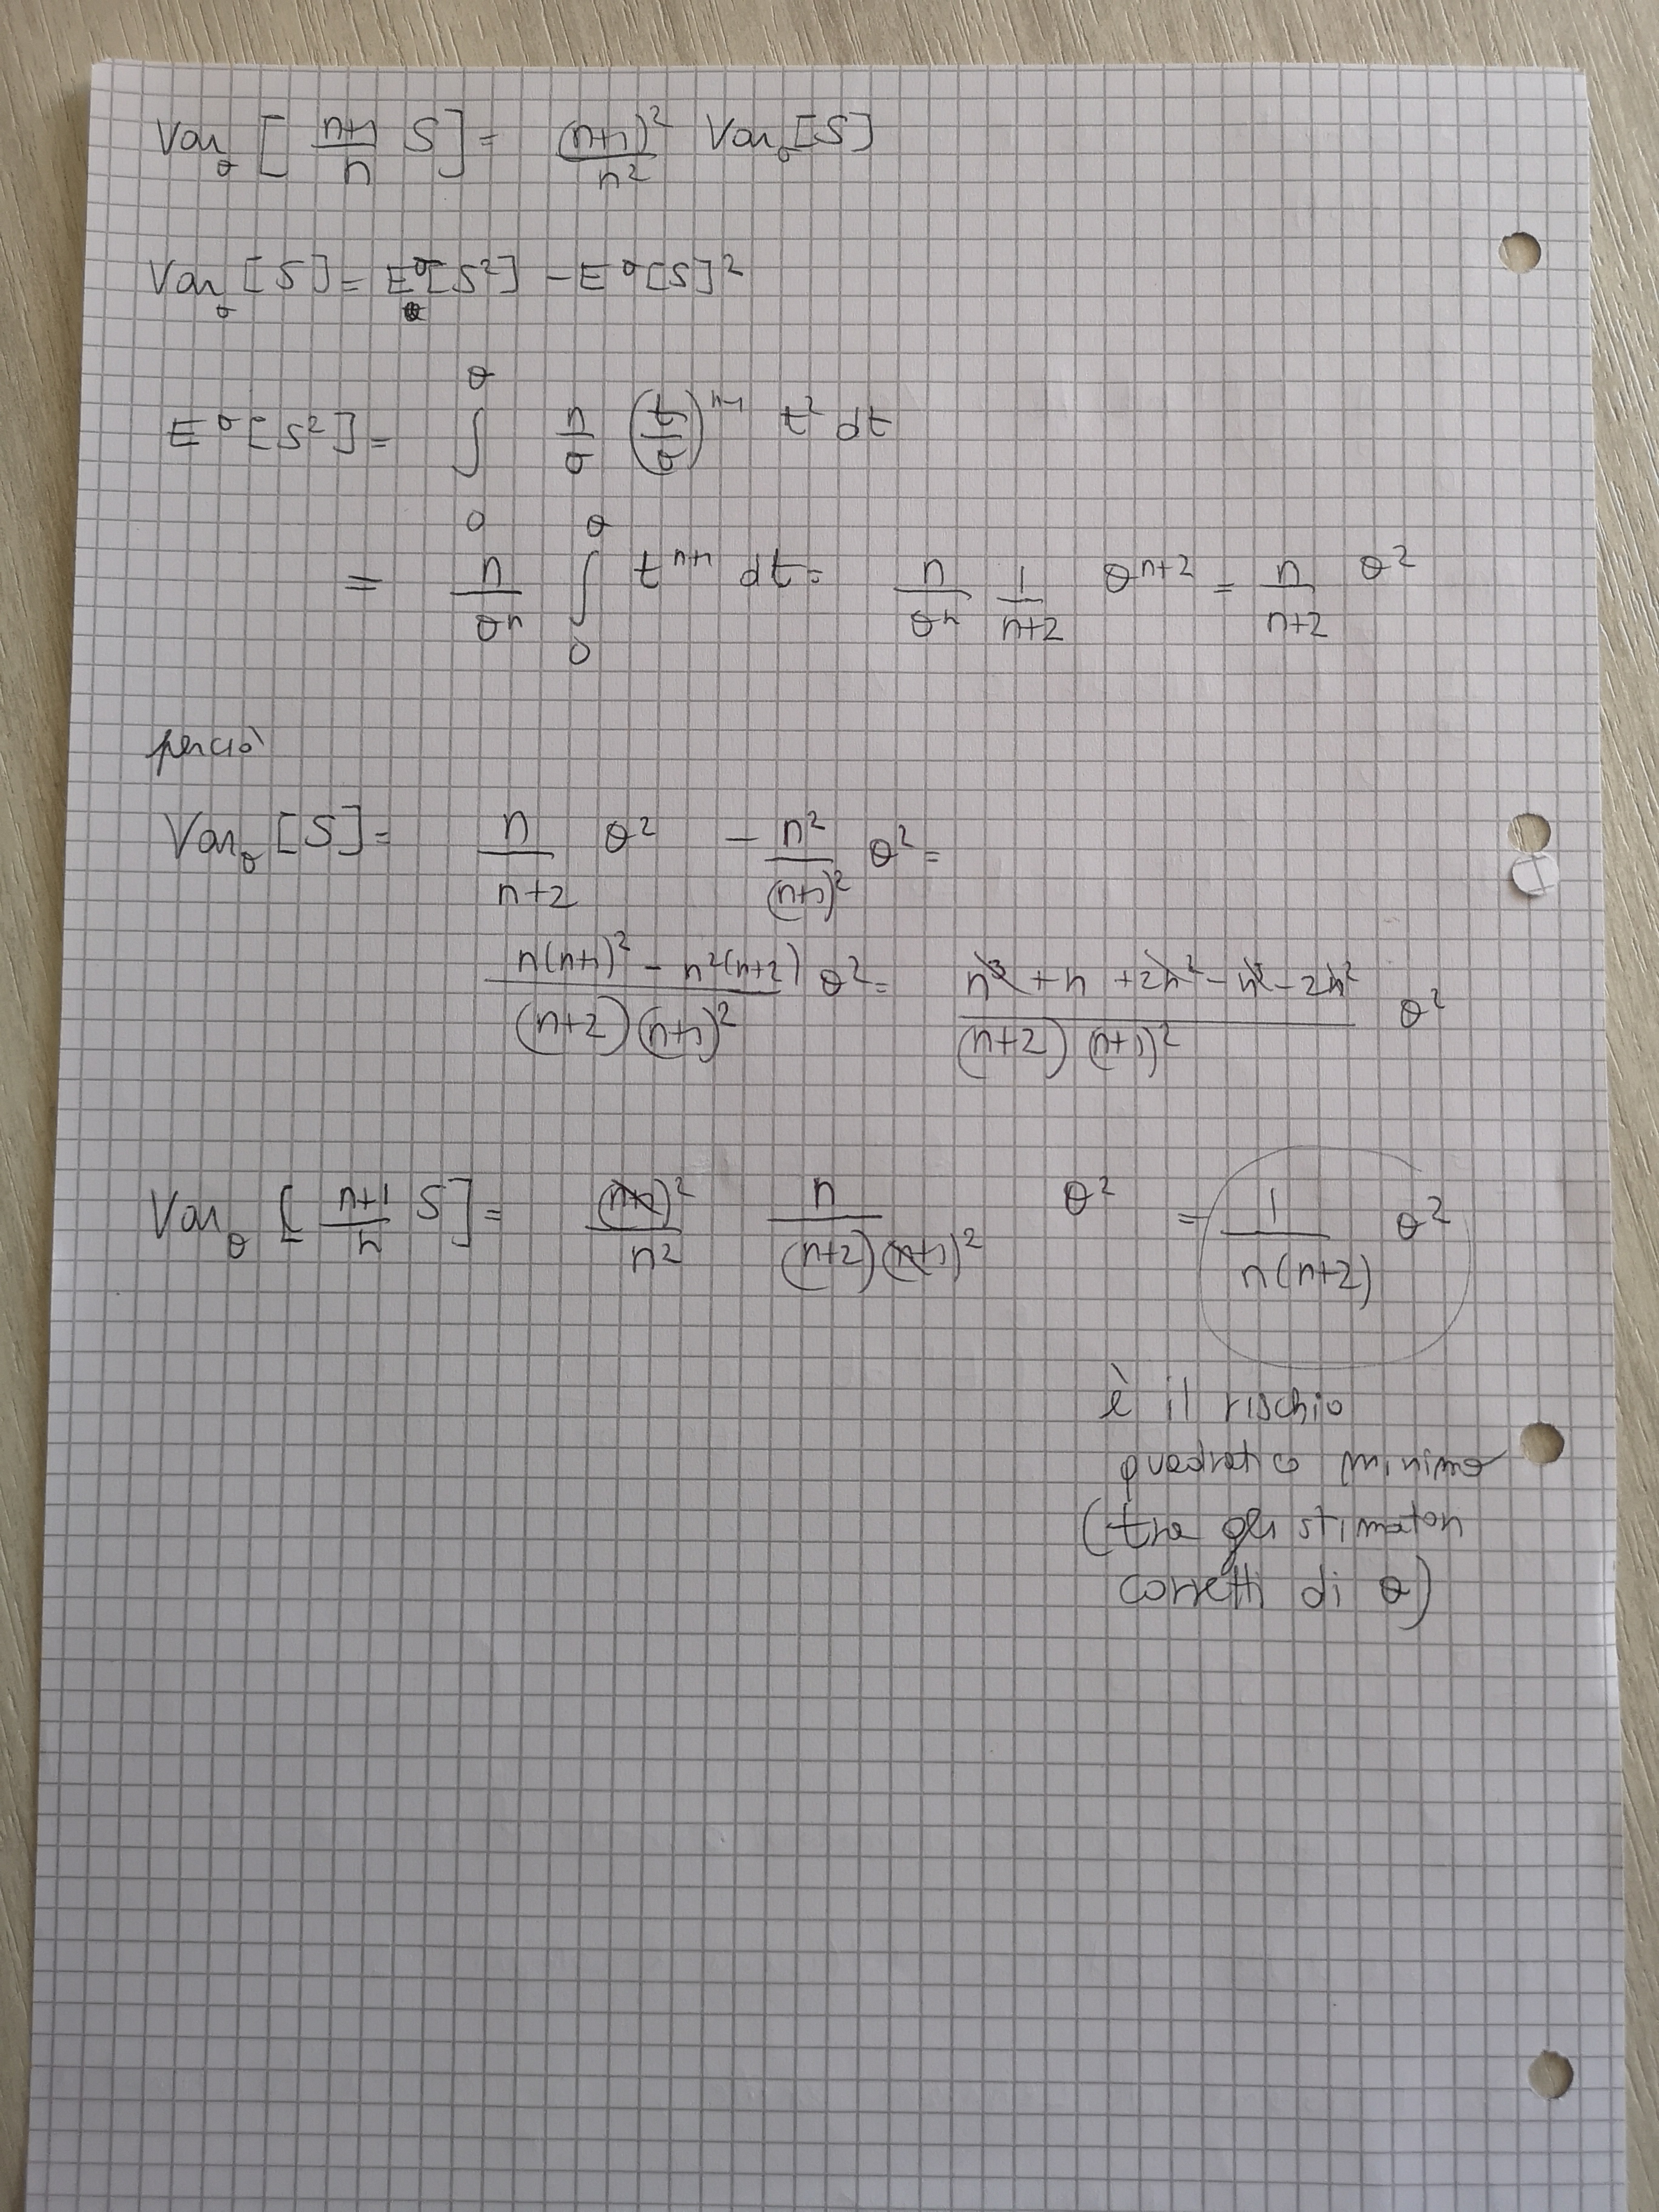 Var_θ [ (n+1)/n S ] = (n+1)²/n² Var_θ [S]
Var_θ [S] = E^θ[S²] - E^θ[S]²
E^θ[S²] = ∫_0^θ n/θ (t/θ)^{n-1} t² dt
= n/θ^n ∫_0^θ t^{n+1} dt = n/θ^n 1/(n+2) θ^{n+2} = n/(n+2) θ²
perciò
Var_θ [S] = n/(n+2) θ² - n²/(n+1)² θ² =
(n(n+1)² - n²(n+2))/((n+2)(n+1)²) θ² = (n³ + n + 2n² - n³ - 2n²)/((n+2)(n+1)²) θ²
Var_θ [ (n+1)/n S ] = (n+1)²/n² n/((n+2)(n+1)²) θ² = 1/(n(n+2)) θ²
è il rischio
quadratico minimo
(tra gli stimatori
corretti di θ)